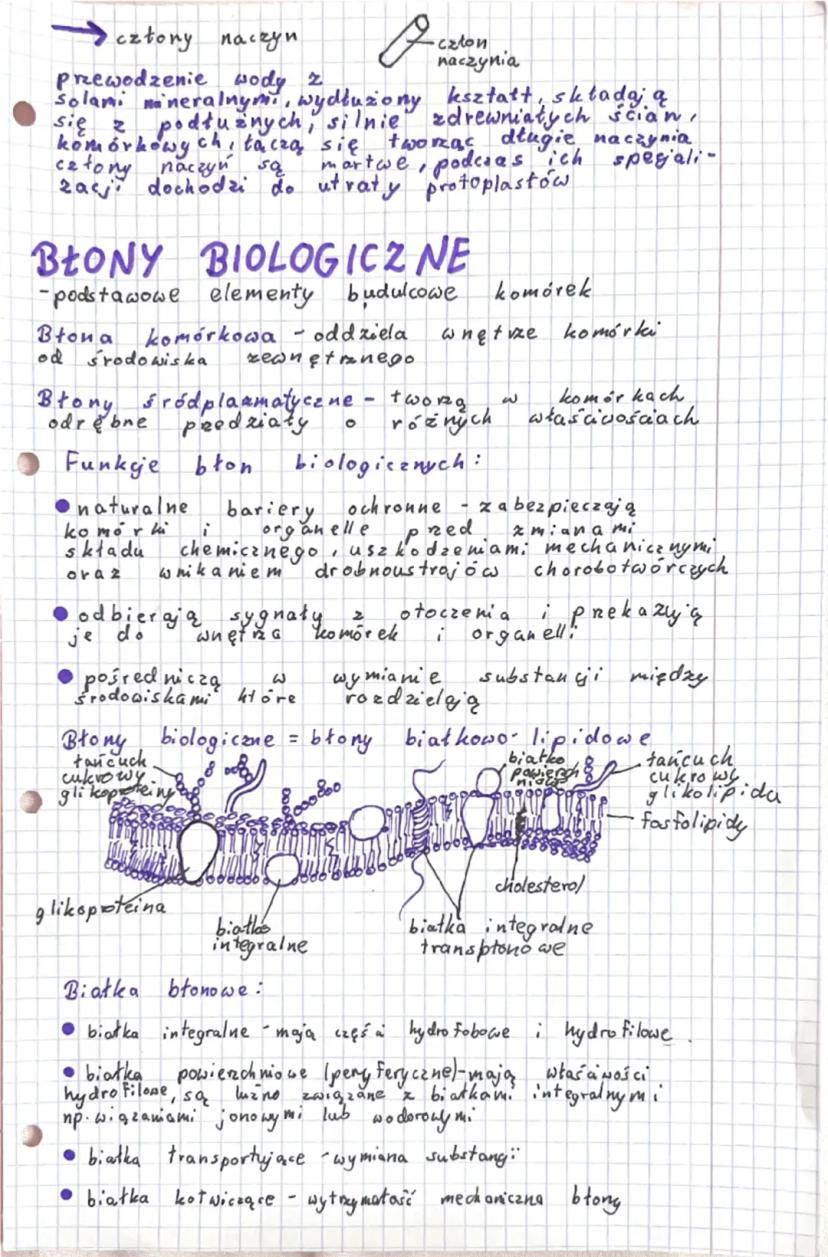 → człony naczyń
człon
naczynia
przewodzenie wody z
solami mineralnymi, wydłużony kształt, składają
się z podłużnych, silnie zdrewniałych ścian,
komórkowych, łączą się tworząc długie naczynia
człony naczyń są martwe, podczas ich specjali-
zacji dochodzi do utraty protoplastów
BŁONY BIOLOGICZNE
-podstawowe elementy budulcowe komórek
Błona komórkowa - oddziela wnętrze komórki
od środowiska zewnętrznego
Błony śródplazmatyczne - tworzą w komórkach
odrębne przedziały o różnych właściwościach
Funkcje błon biologicznych:
● naturalne bariery ochronne - zabezpieczają
komórki i organelle przed zmianami
składu chemicznego, uszkodzeniami mechanicznymi
oraz wnikaniem drobnoustrojów chorobotwórczych
● odbierają sygnały z otoczenia i przekazują
je do wnętrza komórek i organelli
● pośredniczą w wymianie substancji między
środowiskami które rozdzielają
Błony biologiczne = błony białkowo-lipidowe
łańcuch
cukrowy
glikoproteiny
białko
powierzch
niowe
łańcuch
cukrowy
glikolipidu
fosfolipidy
cholesterol
glikoproteina
białko
integralne
białka integralne
transbłonowe
Białka błonowe:
● białka integralne - mają części hydrofobowe i hydrofilowe.
● białka powierzchniowe (peryferyczne)-mają właściwości
hydrofilowe, są luźno związane z białkami integralnymi
np. wiązaniami jonowymi lub wodorowymi
● białka transportujące - wymiana substancji
● białka kotwiczące - wytrzymałość mechaniczna błony